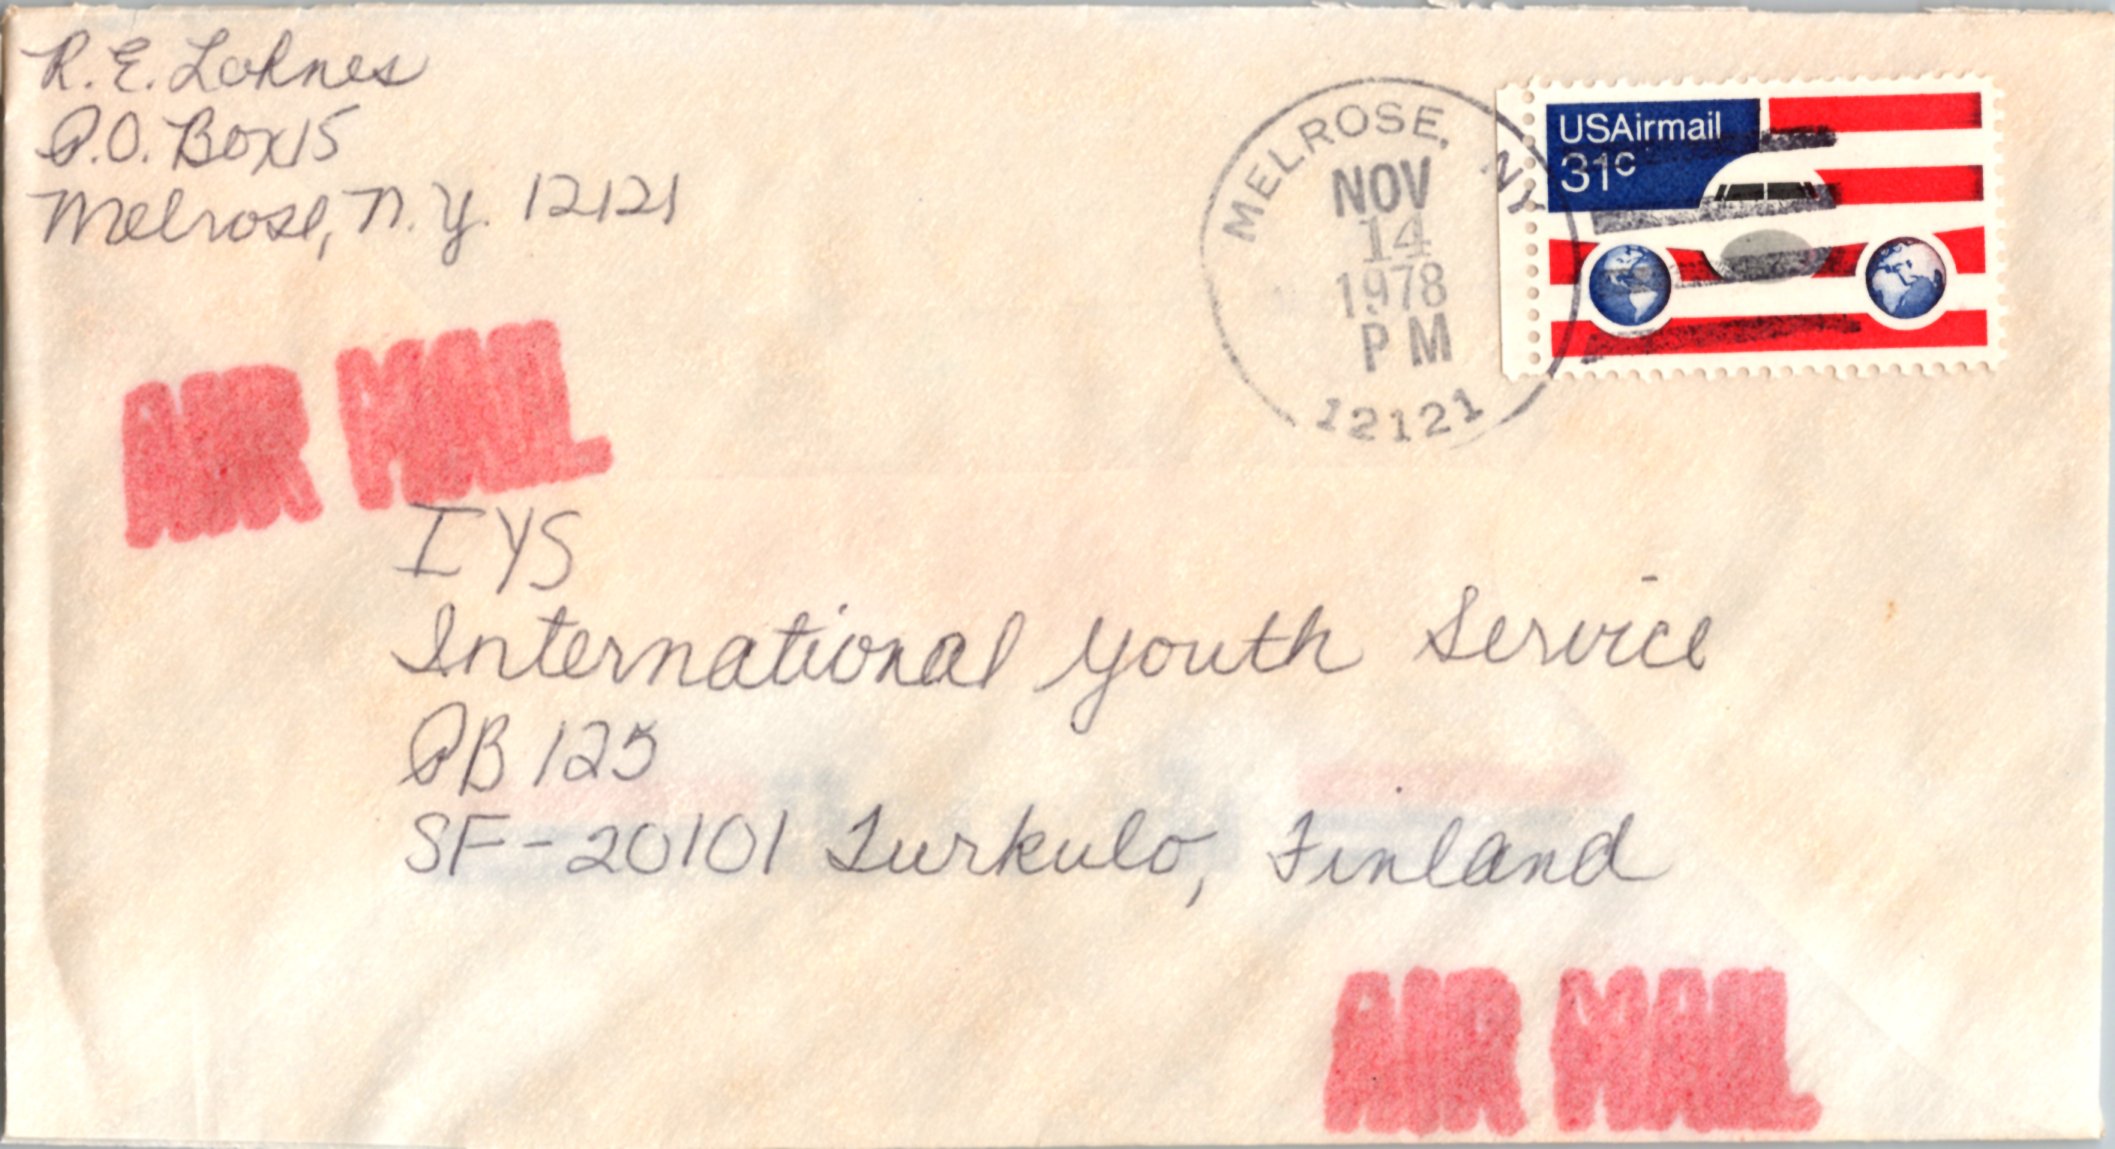 R. E. Lohnes
P.O. Box 15
Melrose, N. Y. 12121
MELROSE, NY
NOV
14
1978
PM
12121
USAirmail
31c
AIR MAIL
IYS
International Youth Service
PB 125
SF-20101 Turkulo, Finland
AIR MAIL